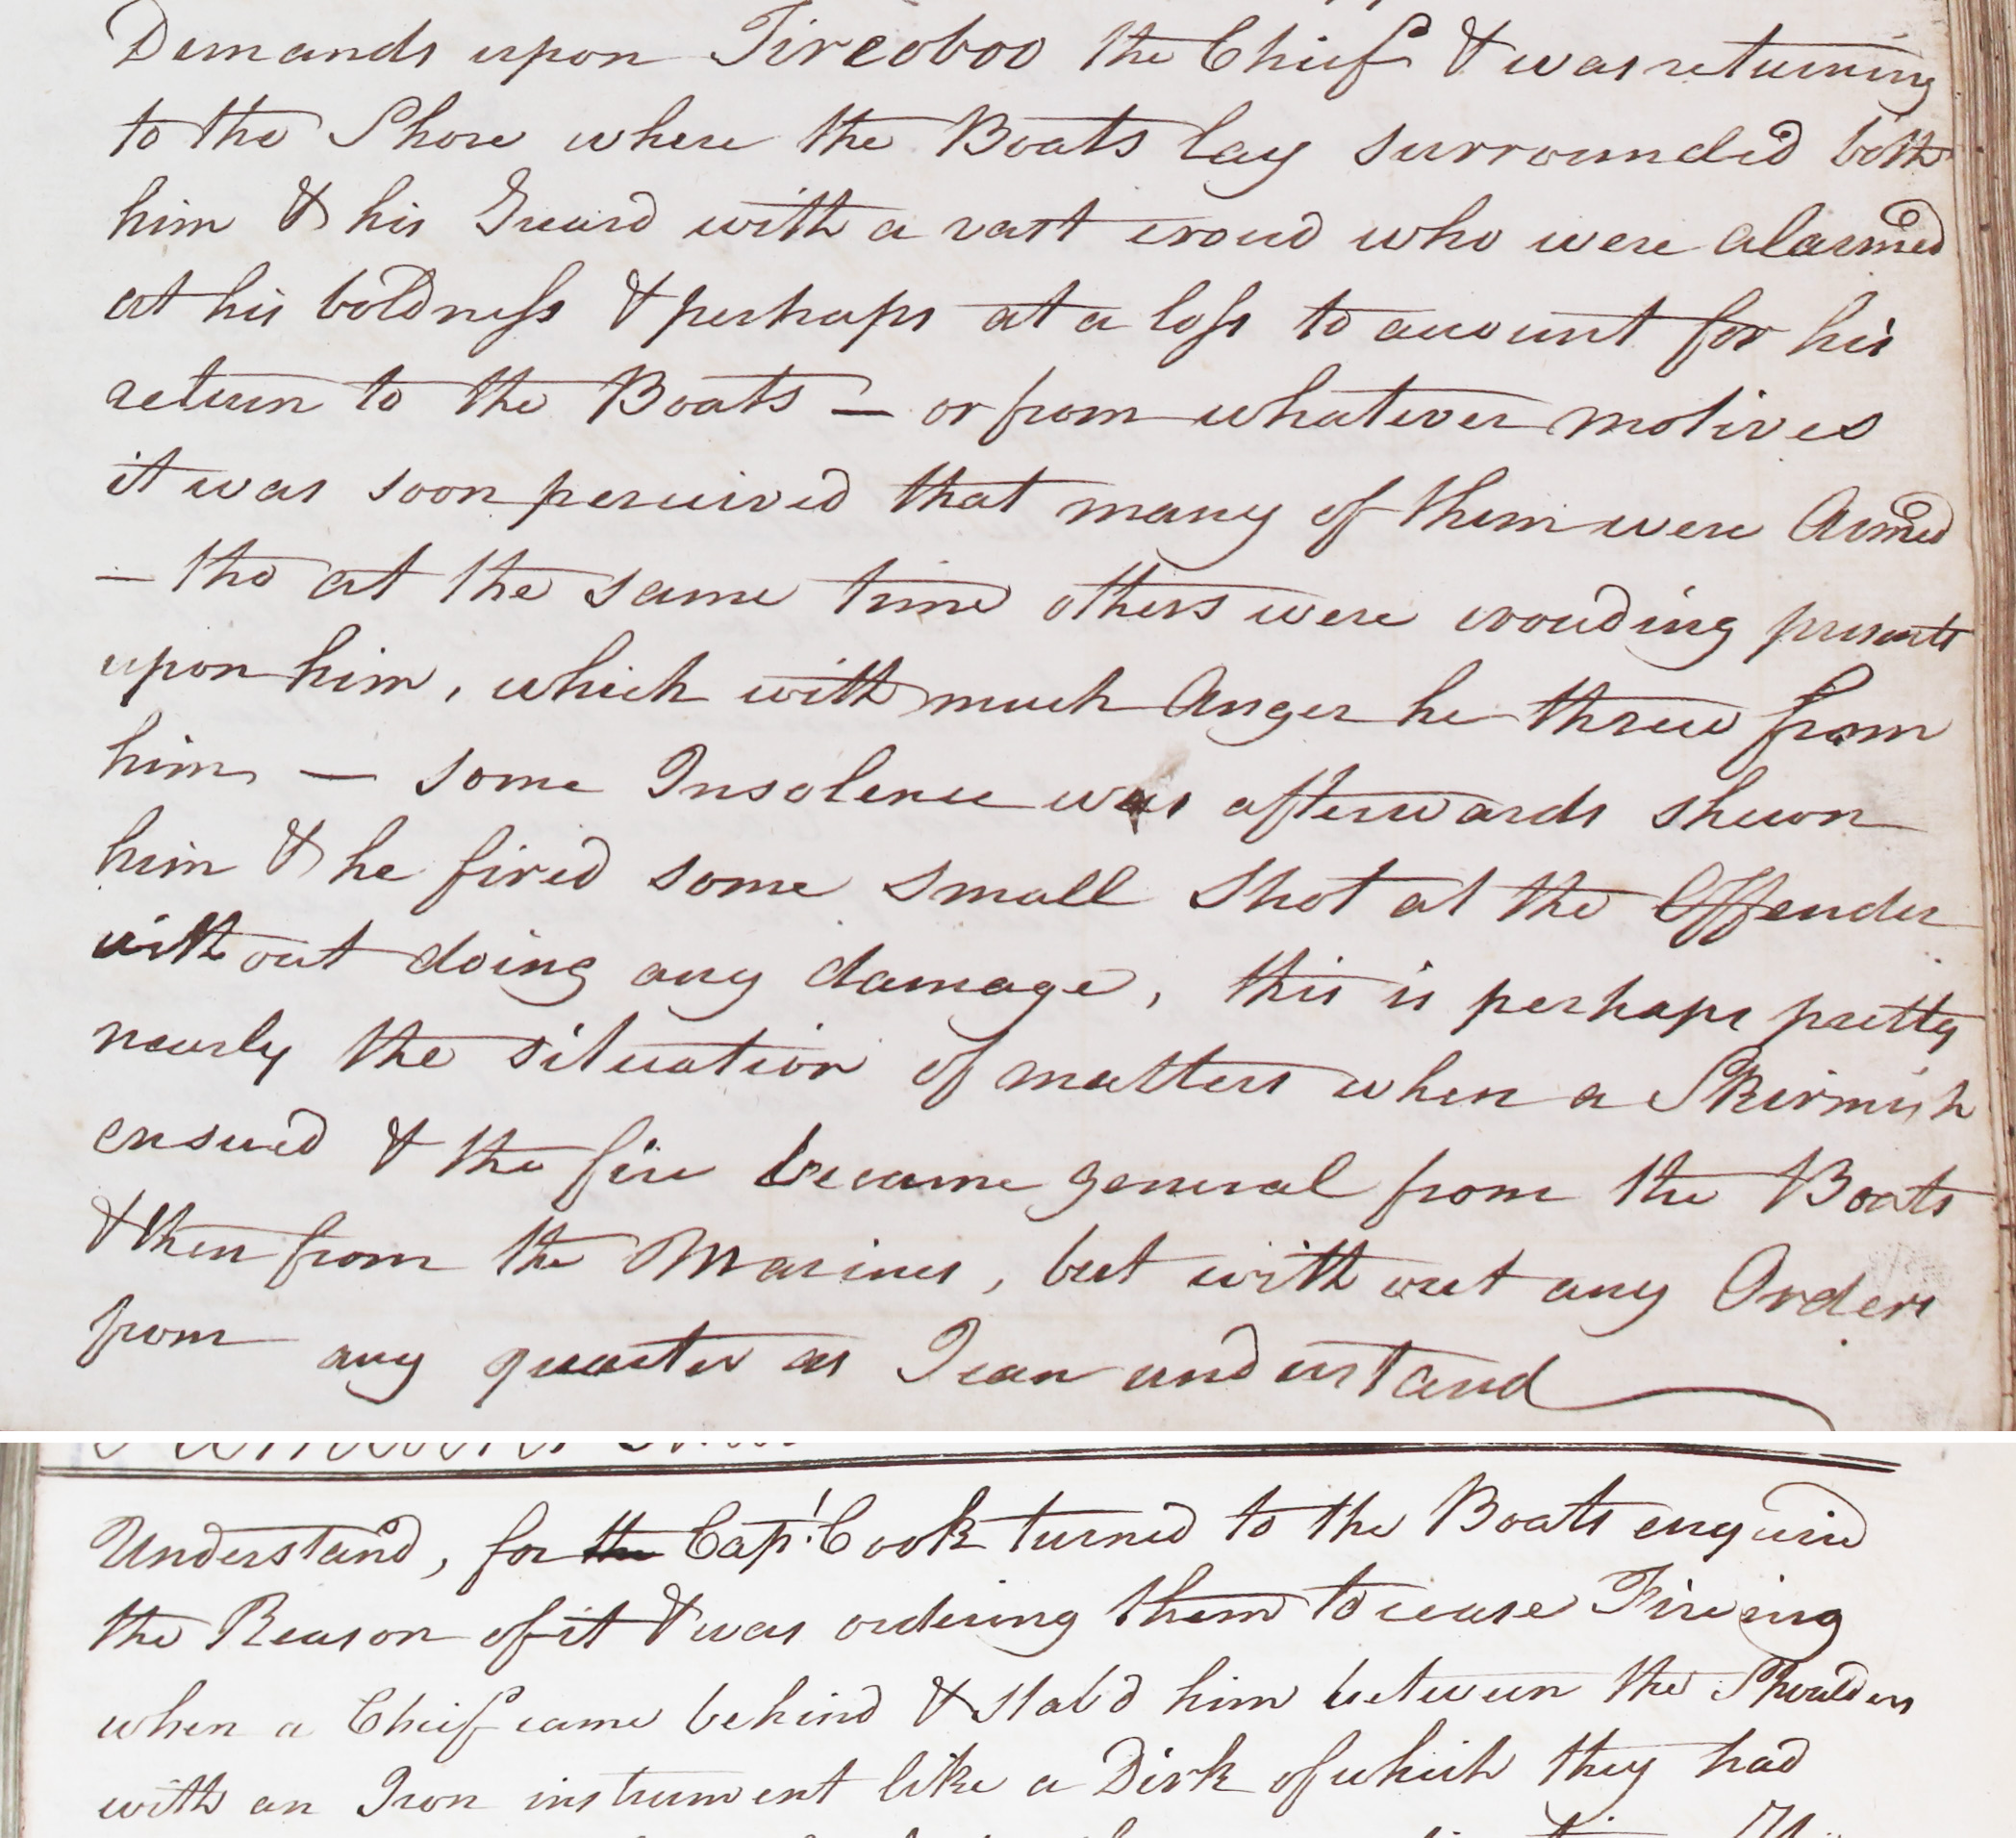 Demands upon Tireoboo the Chief & was returning
to the Shore where the Boats lay surrounded both
him & his Guard with a vast croud who were alarmed
at his boldness & perhaps at a loss to account for his
return to the Boats — or from whatever motives
it was soon perceived that many of them were Armed
— tho at the same time others were crouding presents
upon him, which with much Anger he threw from
him, — some Insolence was afterwards shewn
him & he fired some small shot at the Offender
without doing any damage, this is perhaps pretty
nearly the situation of matters when a Skirmish
ensued & the fire became general from the Boats
& then from the Marines, but with out any Orders
from any quarter as I can understand
Understand, for the Capt Cook turned to the Boats enquired
the Reason of it & was ordering them to cease Fireing
when a Chief came behind & stab'd him between the Shoulders
with an Iron instrument like a Dirk of which they had